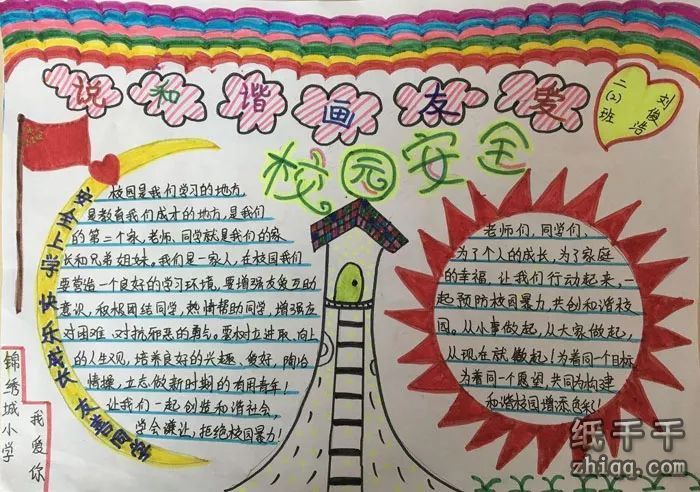 说和谐画友爱
二(2)班
刘俊浩
校园安全
安全上学 快乐成长 友善同学
校园是我们学习的地方,
是教育我们成才的地方,是我们
的第二个家,老师、同学就是我们的家
长和兄弟姐妹。我们是一家人,在校园我们
要营造一个良好的学习环境,要增强友爱互助
意识,积极团结同学,热情帮助同学,增强应
对困难、对抗邪恶的勇气。要树立进取、向上
的人生观,培养良好的兴趣、爱好,陶冶
情操,立志做新时期的有用青年!
让我们一起创造和谐社会,
学会谦让,拒绝校园暴力!
老师们,同学们,
为了个人的成长,为了家庭
的幸福,让我们行动起来,一
起预防校园暴力,共创和谐校
园。从小事做起,从大家做起,
从现在就做起!为着同一个目标,
为着同一个愿望,共同为构建
和谐校园增添色彩!
锦绣城小学
我爱你
纸千千
zhiqq.com